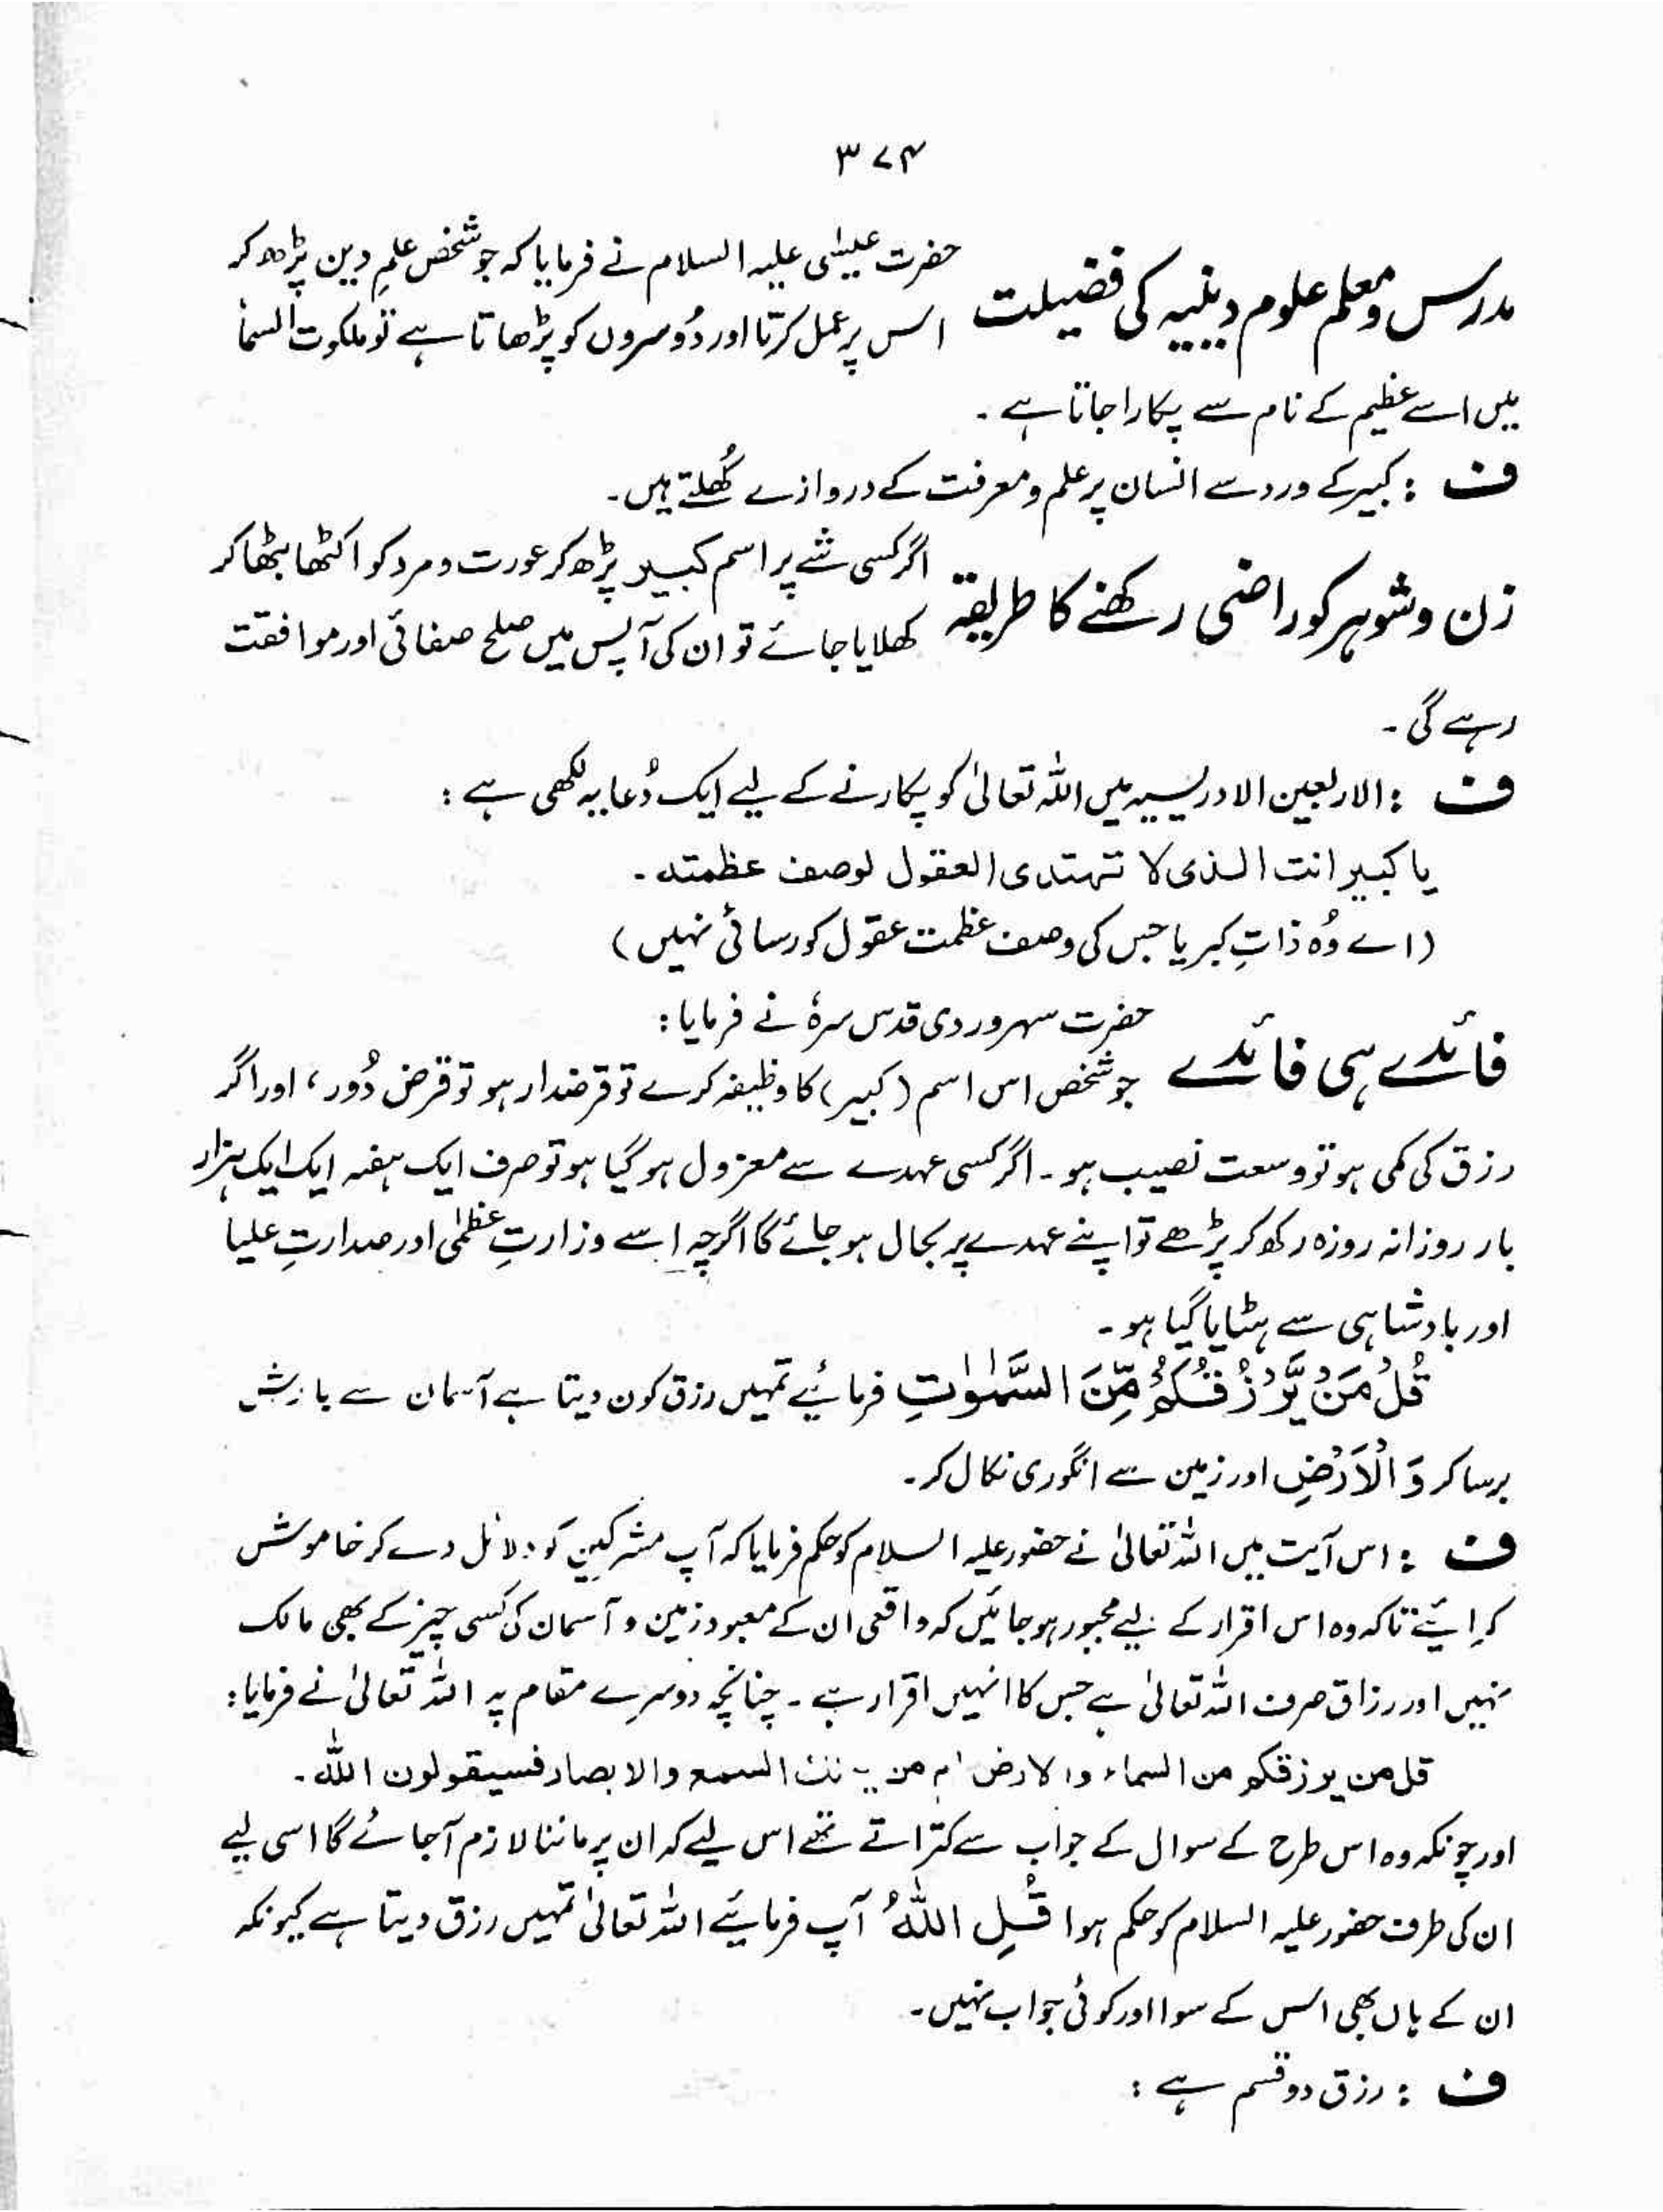 ۳۷۴
مدرس و معلم علوم دینیہ کی فضیلت
حضرت عیسٰی علیہ السلام نے فرمایا کہ جو شخص علمِ دین پڑھ کر
اس پر عمل کرتا اور دُوسروں کو پڑھاتا ہے تو ملکوت السمأ
میں اسے عظیم کے نام سے پکارا جاتا ہے ۔
ف : کبیر کے ورد سے انسان پر علم و معرفت کے دروازے کُھلتے ہیں ۔
زن و شوہر کو راضی رکھنے کا طریقہ
اگر کسی شے پر اسم کبیر پڑھ کر عورت و مرد کو اکٹھا بٹھا کر
کھلایا جائے تو ان کی آپس میں صلح صفائی اور موافقت
رہے گی ۔
ف : الاربعین الادریسیہ میں اللہ تعالٰی کو پکارنے کے لیے ایک دُعا یہ لکھی ہے :
یا کبیر انت الذی لا تہتدی العقول لوصف عظمتہ ۔
(اے وُہ ذاتِ کبریا جس کی وصف عظمت عقول کو رسائی نہیں)
فائدے ہی فائدے
حضرت سہروردی قدس سرہٗ نے فرمایا :
جو شخص اس اسم (کبیر) کا وظیفہ کرے تو قرضدار ہو تو قرض دُور ، اور اگر
رزق کی کمی ہو تو وسعت نصیب ہو ۔ اگر کسی عہدے سے معزول ہو گیا ہو تو صرف ایک ہفتہ ایک ایک ہزار
بار روزانہ روزہ رکھ کر پڑھے تو اپنے عہدے پر بحال ہو جائے گا اگرچہ اسے وزارتِ عظمٰی اور صدارتِ علیا
اور بادشاہی سے ہٹایا گیا ہو ۔
قُلْ مَنْ یَّرْزُقُکُمْ مِّنَ السَّمٰوٰتِ فرمائیے تمہیں رزق کون دیتا ہے آسمان سے بارش
برسا کر وَالْاَرْضِ اور زمین سے انگوری نکال کر ۔
ف : اس آیت میں اللہ تعالٰی نے حضور علیہ السلام کو حکم فرمایا کہ آپ مشرکین کو دلائل دے کر خاموش
کرائیے تاکہ وہ اس اقرار کے لیے مجبور ہو جائیں کہ واقعی ان کے معبود زمین و آسمان کی کسی چیز کے بھی مالک
نہیں اور رزاق صرف اللہ تعالٰی ہے جس کا انہیں اقرار ہے ۔ چنانچہ دوسرے مقام پہ اللہ تعالٰی نے فرمایا :
قل من یرزقکم من السماء والارض ام من السمع والابصار فسیقولون اللہ ۔
اور چونکہ وہ اس طرح کے سوال کے جواب سے کتراتے تھے اس لیے کہ ان پر ماننا لازم آجائے گا اسی لیے
ان کی طرف حضور علیہ السلام کو حکم ہوا قُلِ اللّٰہُ آپ فرمائیے اللہ تعالٰی تمہیں رزق دیتا ہے کیونکہ
ان کے ہاں بھی اس کے سوا اور کوئی جواب نہیں ۔
ف : رزق دو قسم ہے :